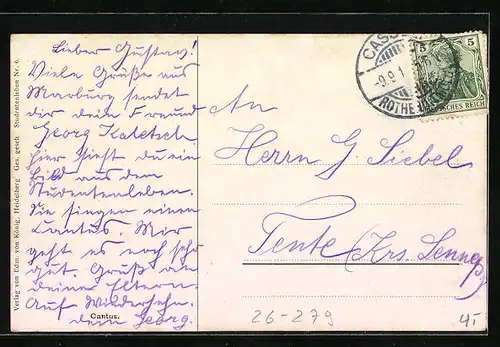 Lieber Gustav!
Viele Grüße aus
Marburg sendet
dir dein Freund
Georg Kaletsch
Hier siehst du ein
Bild aus dem
Studentenleben.
Sie singen einen
Cantus. Mir
geht es noch sehr
gut. Grüß an
deine Eltern
Auf Wiedersehn.
dein Georg.
Cantus.
Verlag von Edm. von König, Heidelberg Ges. gesch Studentenleben Nr. 6.
An
Herrn G. Siebel
Tente Krs. Lennep
CASSEL
-9.9.1
ROTHE
5 5
REICH
26-279
4,-